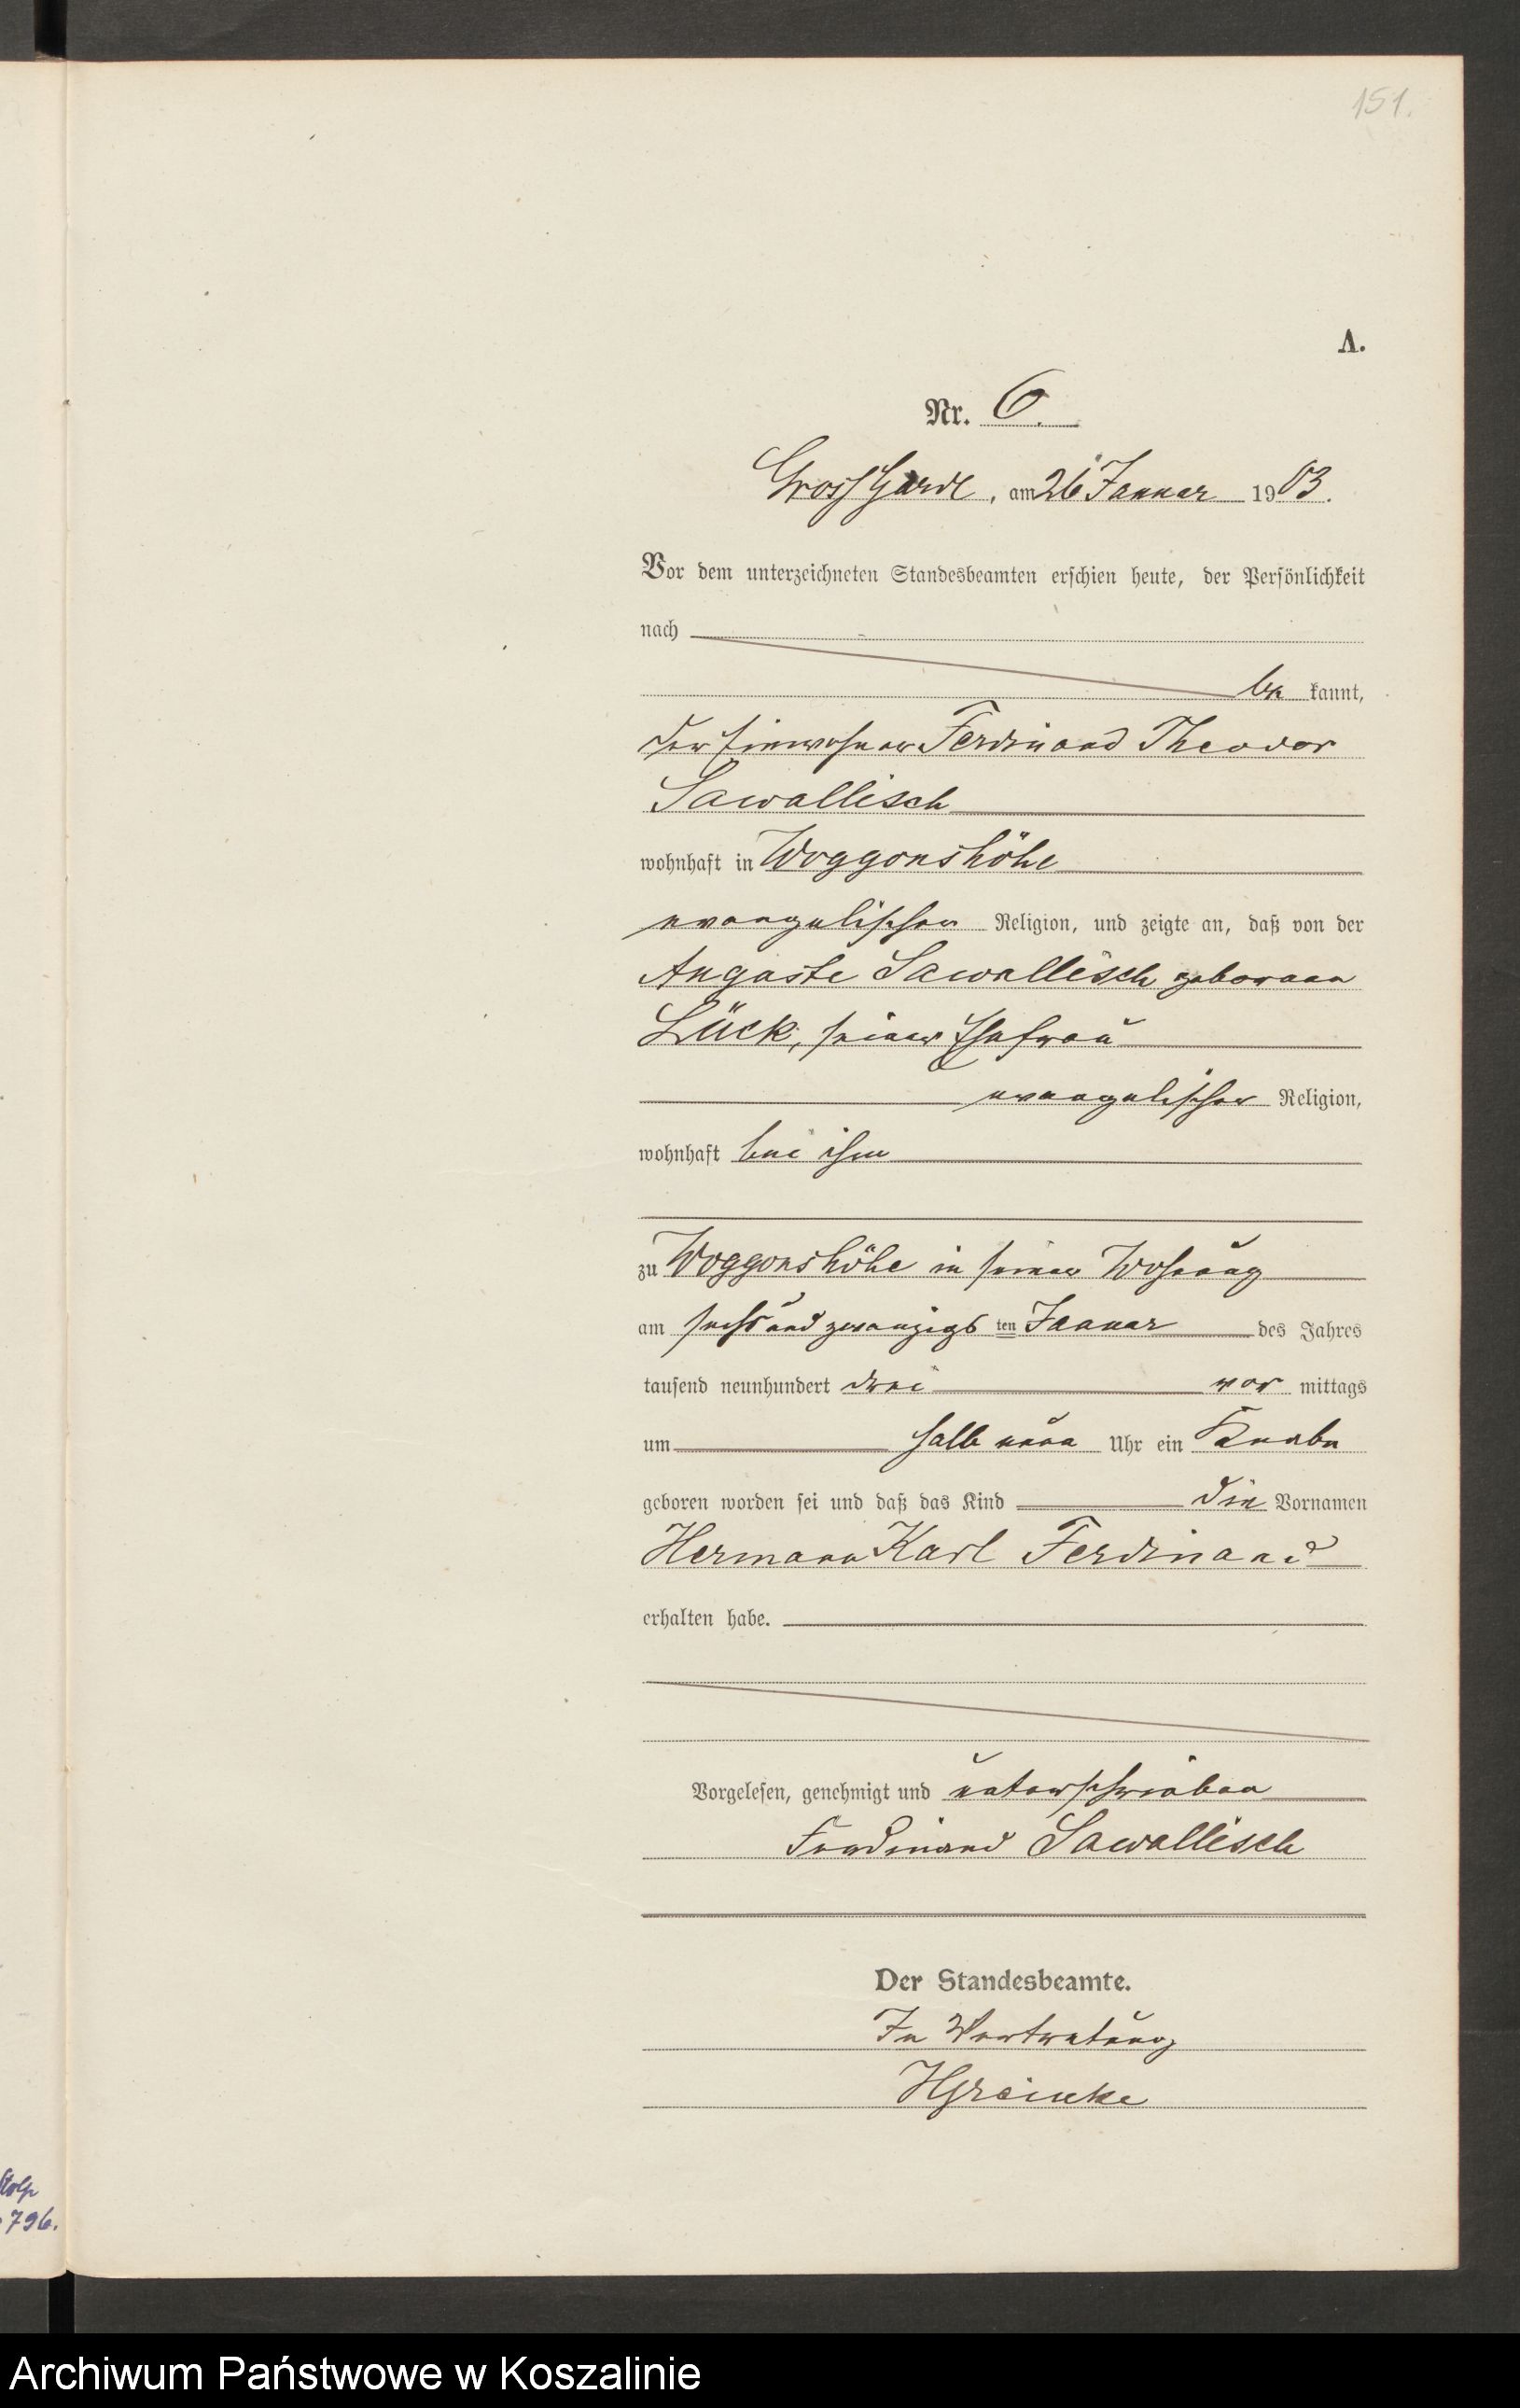 151.
A.
Nr. 6.
Gross Garde, am 26 Januar 1903.
Vor dem unterzeichneten Standesbeamten erschien heute, der Persönlichkeit
nach
be kannt,
der Einwohner Ferdinand Theodor
Sawallisch
wohnhaft in Woggonshöhe
evangelischer Religion, und zeigte an, daß von der
Auguste Sawallisch geborenen
Lück, seiner Ehefrau
evangelischer Religion,
wohnhaft bei ihm
zu Woggonshöhe in seiner Wohnung
am sechsundzwanzigsten Januar des Jahres
tausend neunhundert drei vor mittags
um halb neun Uhr ein Knabe
geboren worden sei und daß das Kind die Vornamen
Hermann Karl Ferdinand
erhalten habe.
Vorgelesen, genehmigt und unterschrieben
Ferdinand Sawallisch
Der Standesbeamte.
In Vertretung
Stolp
796.
Archiwum Państwowe w Koszalinie